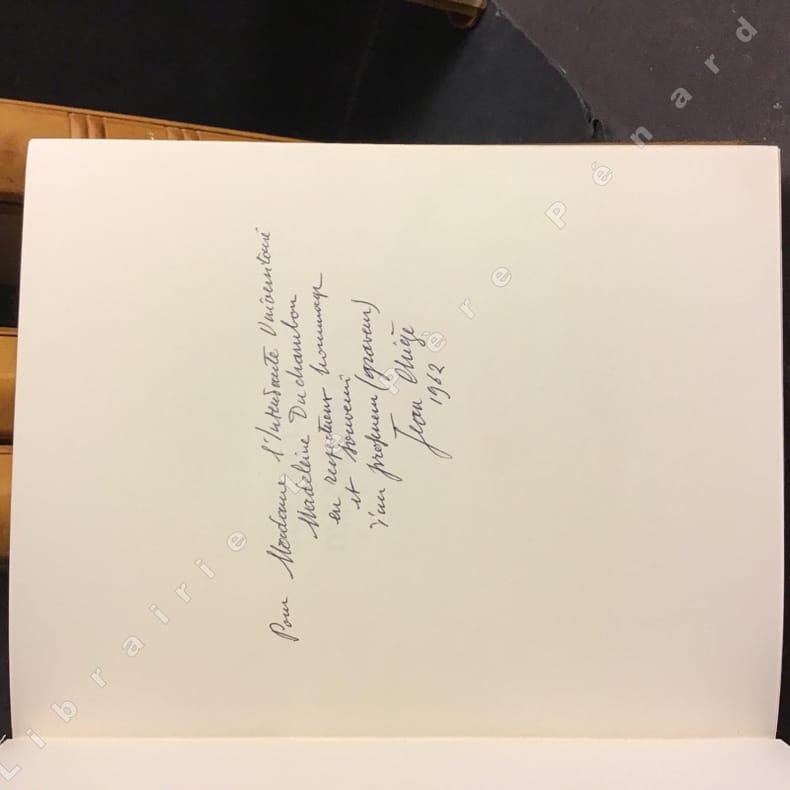 Pour Madame l'Intendante Universitaire
Madeleine Duchambon
en respectueux hommage
et souvenir
d'un professeur (graveur)
Jean Chièze
1962
Librairie Le Père Pénard